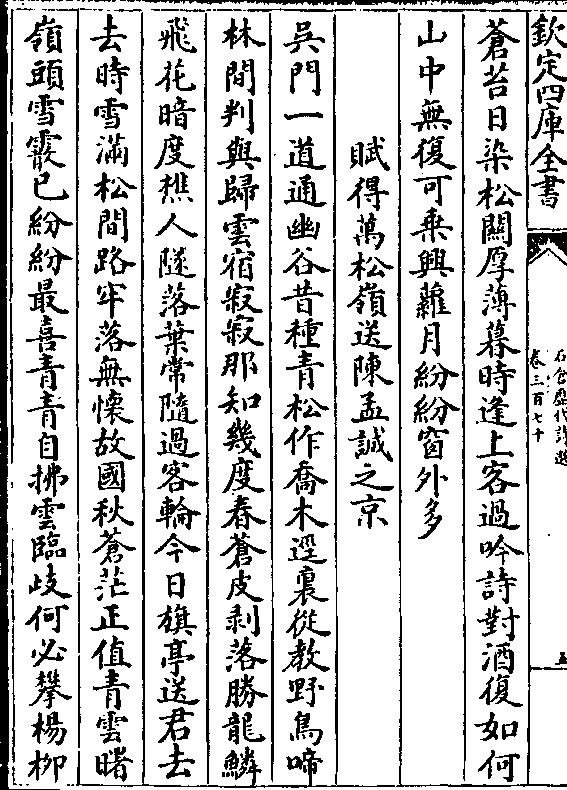 欽定四庫全書
石倉歷代詩選
卷三百七十
五
蒼苔日染松關厚薄暮時逢上客過吟詩對酒復如何
山中無復可乗興蘿月紛紛窗外多
賦得萬松嶺送陳孟誠之京
吳門一道通幽谷昔種青松作喬木逕裏從教野鳥啼
林間判與歸雲宿寂寂那知幾度春蒼皮剥落勝龍鱗
飛花暗度樵人隧落葉常隨過客輪今日旗亭送君去
去時雪滿松間路牢落無懷故國秋蒼茫正值青雲曙
嶺頭雪霰已紛紛最喜青青自拂雲臨歧何必攀楊柳